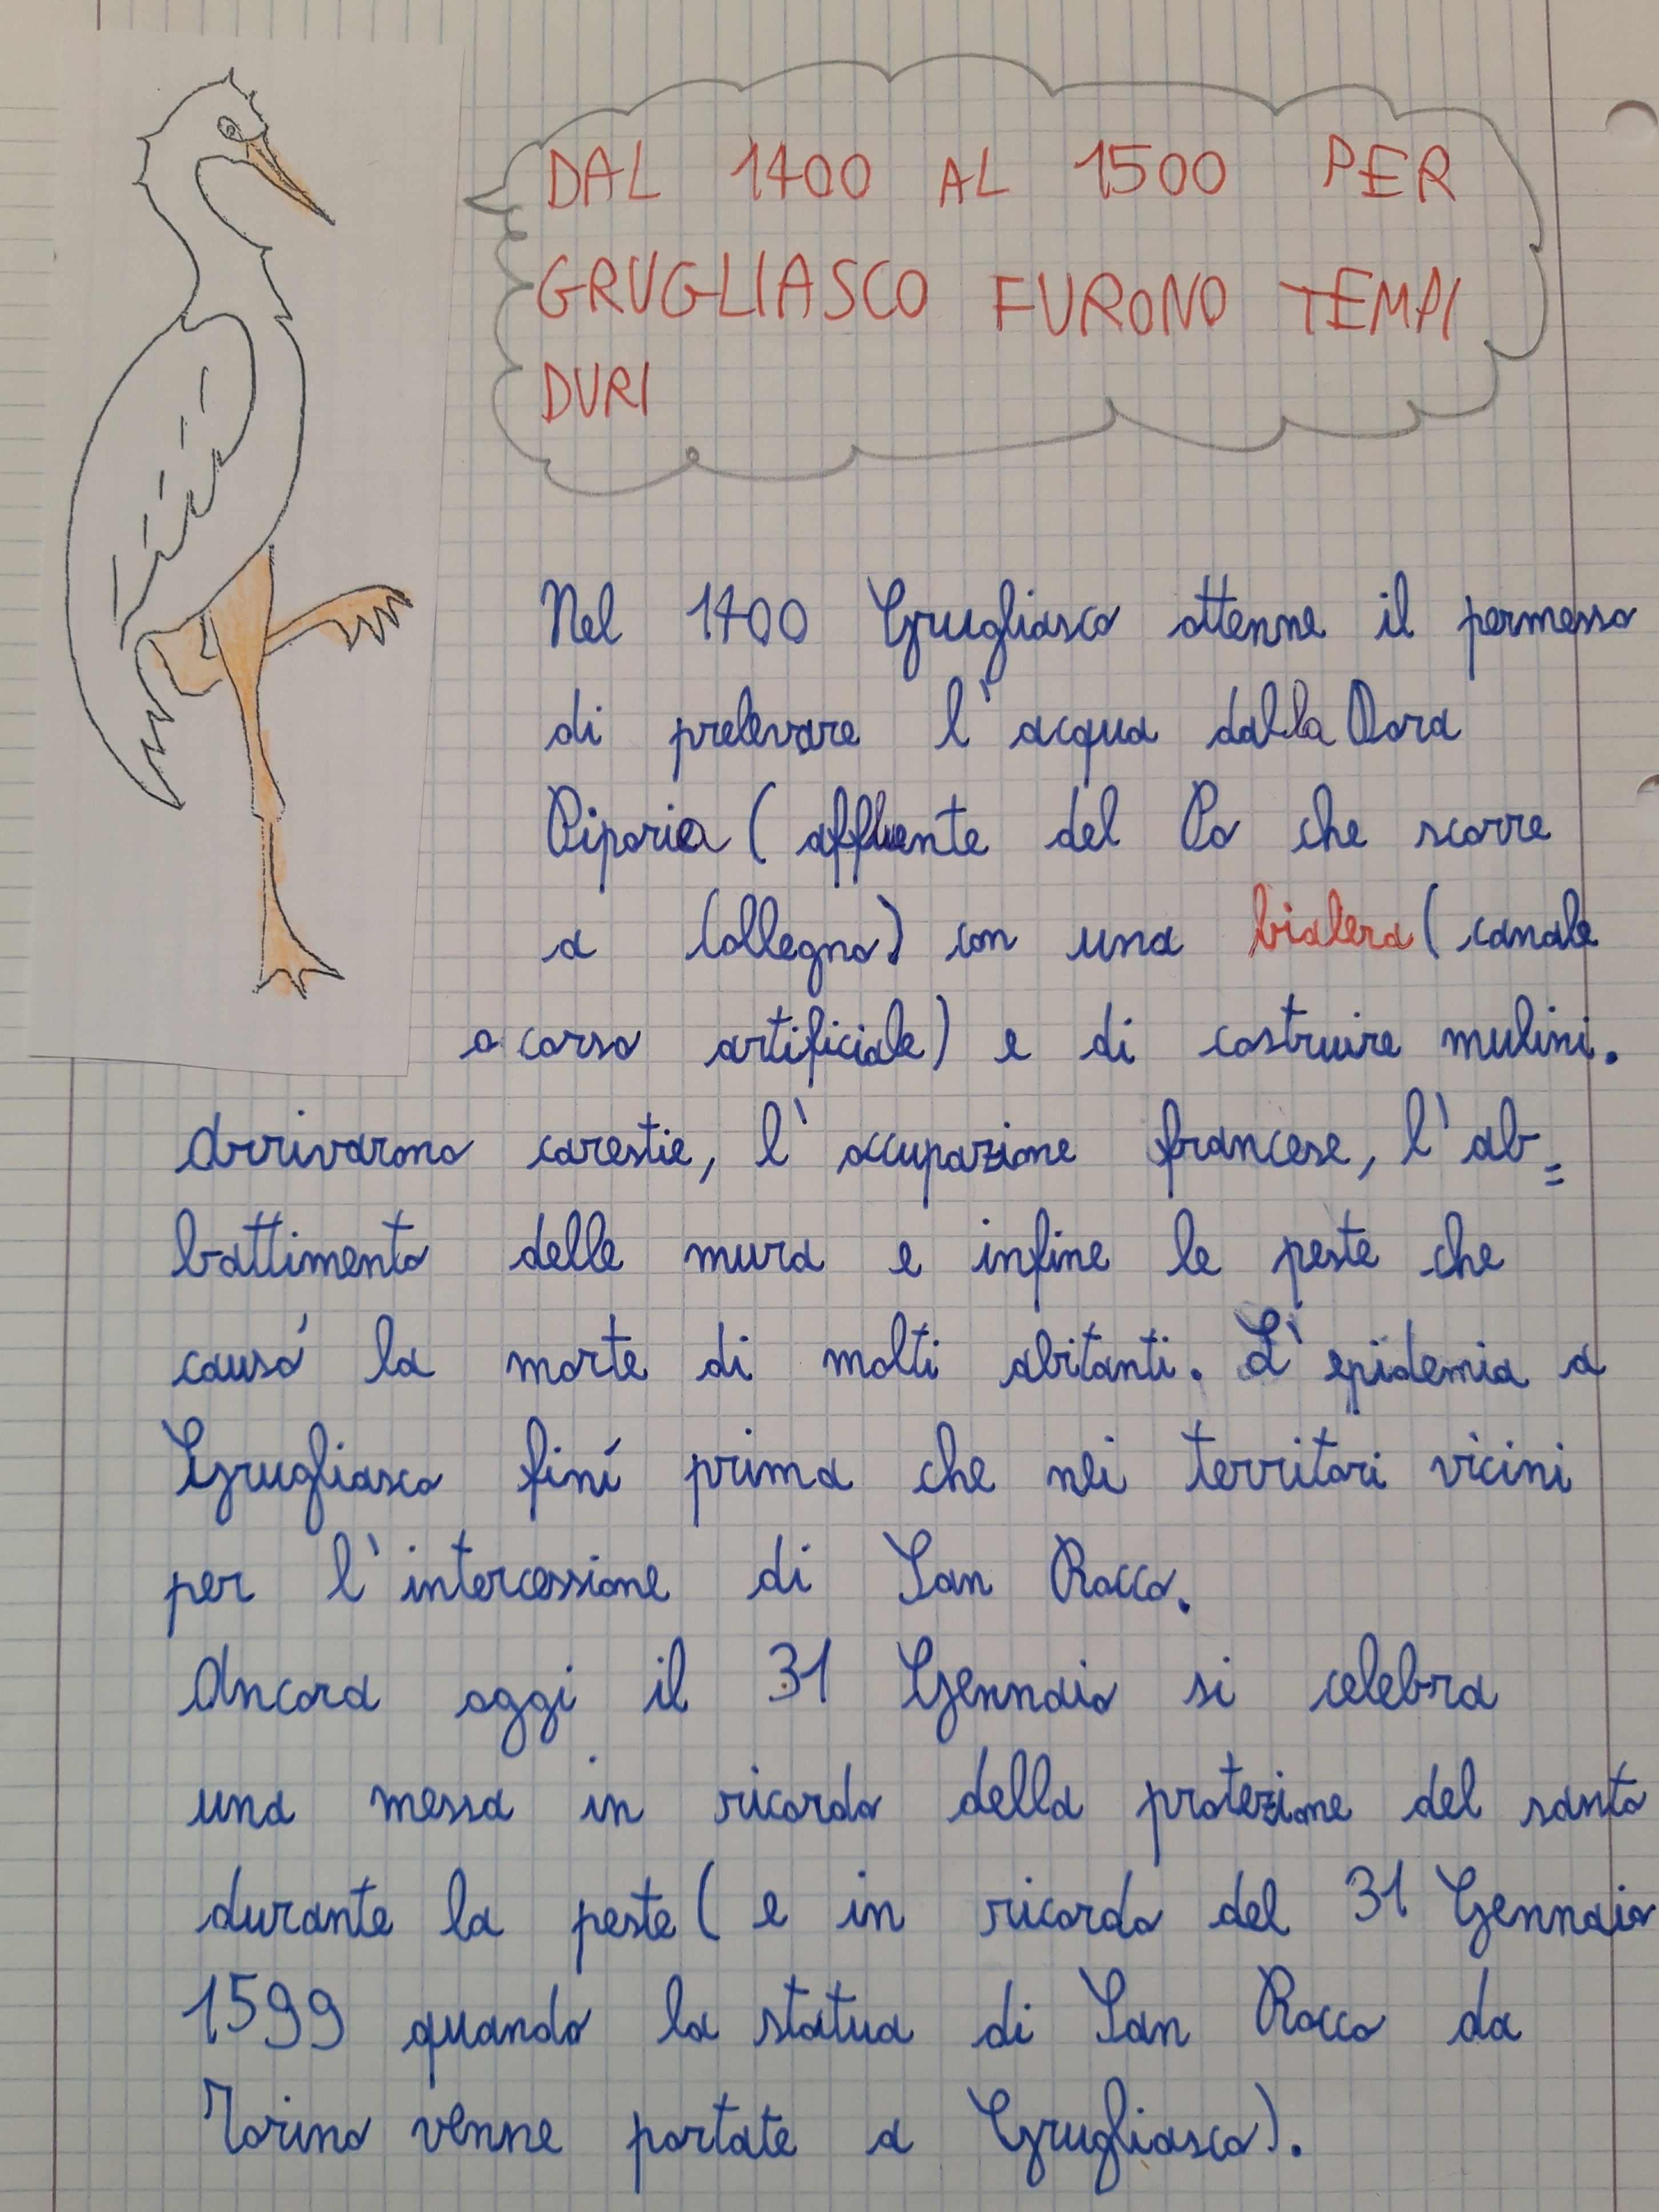 DAL 1400 AL 1500 PER
GRUGLIASCO FURONO TEMPI
DURI
Nel 1400 Grugliasco ottenne il permesso
di prelevare l'acqua dalla Dora
Riparia (affluente del Po che scorre
a Collegno) con una bialera (canale
a corso artificiale) e di costruire mulini.
Arrivarono carestie, l'occupazione francese, l'ab=
battimento delle mura e infine le peste che
causó la morte di molti abitanti. L'epidemia a
Grugliasco finí prima che nei territori vicini
per l'intercessione di San Rocco.
Ancora oggi il 31 Gennaio si celebra
una messa in ricordo della protezione del santo
durante la peste (e in ricordo del 31 Gennaio
1599 quando la statua di San Rocco da
Torino venne portate a Grugliasco).